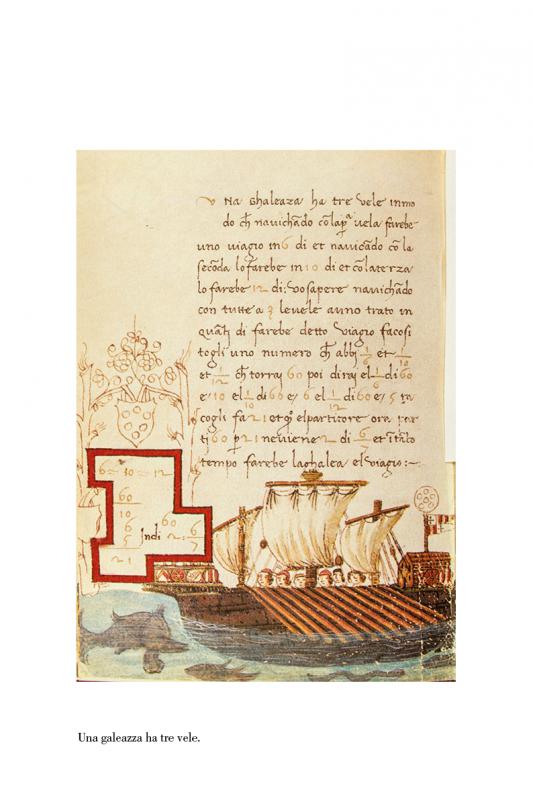 Na Ghaleaza ha tre vele inmo
do cħ navichādo cōlapª vela farebe
uno viagio in 6 di et navicādo cō la
secōda lo farebe in 10 di et cō la terza
lo farebe 12 di: vo sapere navichādo
con tutte a 3 le vele auno trato in
quāti di farebe detto viagio fa cosi
togli uno numero cħ abbi 1/6 et 1/10
et 1/12 cħ torrai 60 poi dirai el 1/6 di 60
e 10 el 1/10 di 60 e 6 el 1/12 di 60 e 5 ra
cogli fa 21 et q° el partitore ora par
ti 60 p 21 ne viene 2 di 6/7 et ī tāto
tempo farebe la ghalea el viagio:~
6 10 12
60
10
6
5 Indi 60 2 6/7
21
Una galeazza ha tre vele.